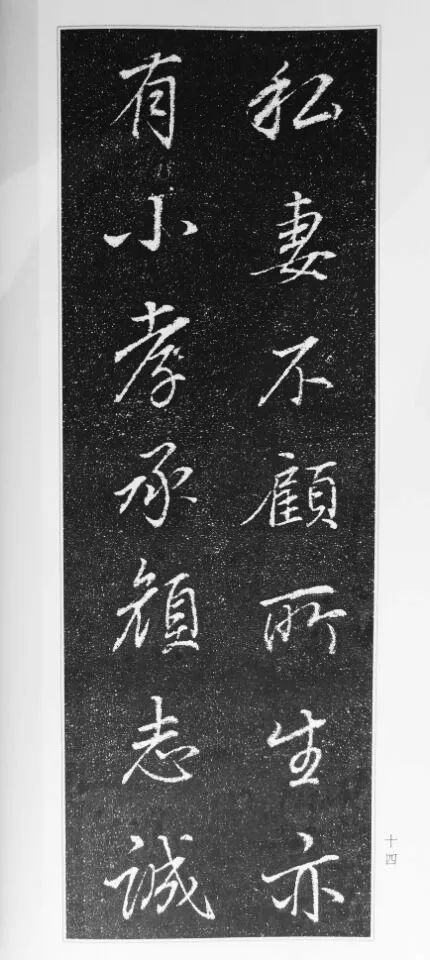 私妻不顧所生亦
有小孝承顏志誠
十四